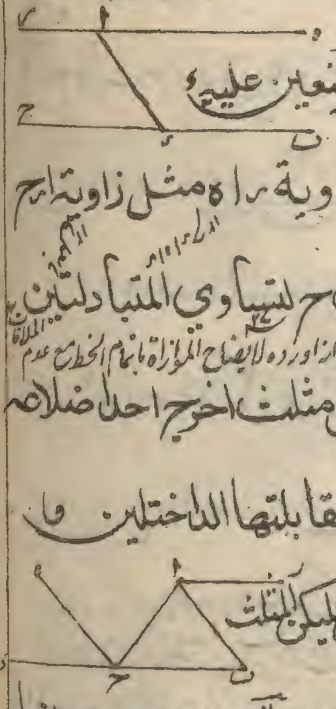 ر ا ه
نعين عليه
ح د ب
وية راه مثل زاوية ارح
ح لتساوي المتبادلتين
اورده لايضاح الموازاة باتمام الخط مع عدم الملاقات
مثلث اخرج احد اضلاعه
قابلتها الداخلتين و
ه ا ر
ليكن المثلث
ح ب